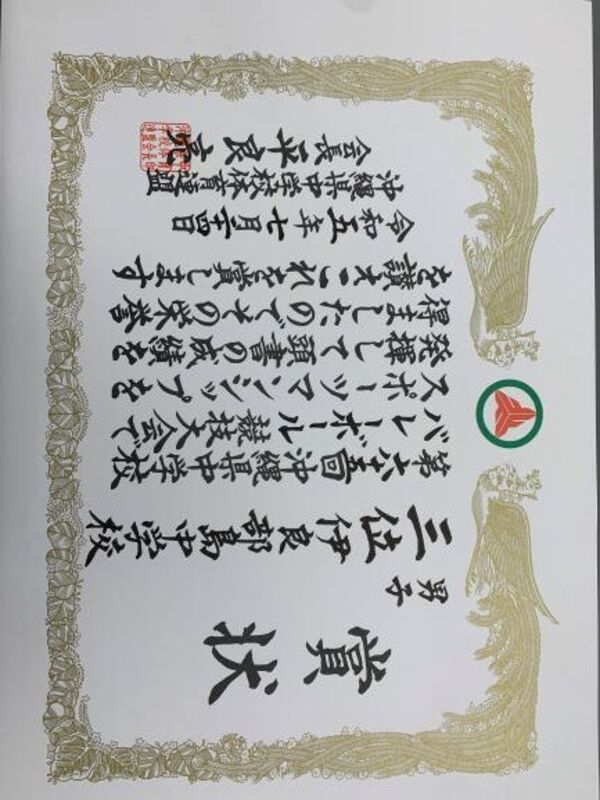 賞状
男子
三位 伊良部島中学校
第六十五回沖縄県中学校
バレーボール競技大会で
スポーツマンシップを
発揮して頭書の成績を
得ましたのでその栄誉
を讃えこれを賞します
令和五年七月二十四日
沖縄県中学校体育連盟
会長 平良 亮